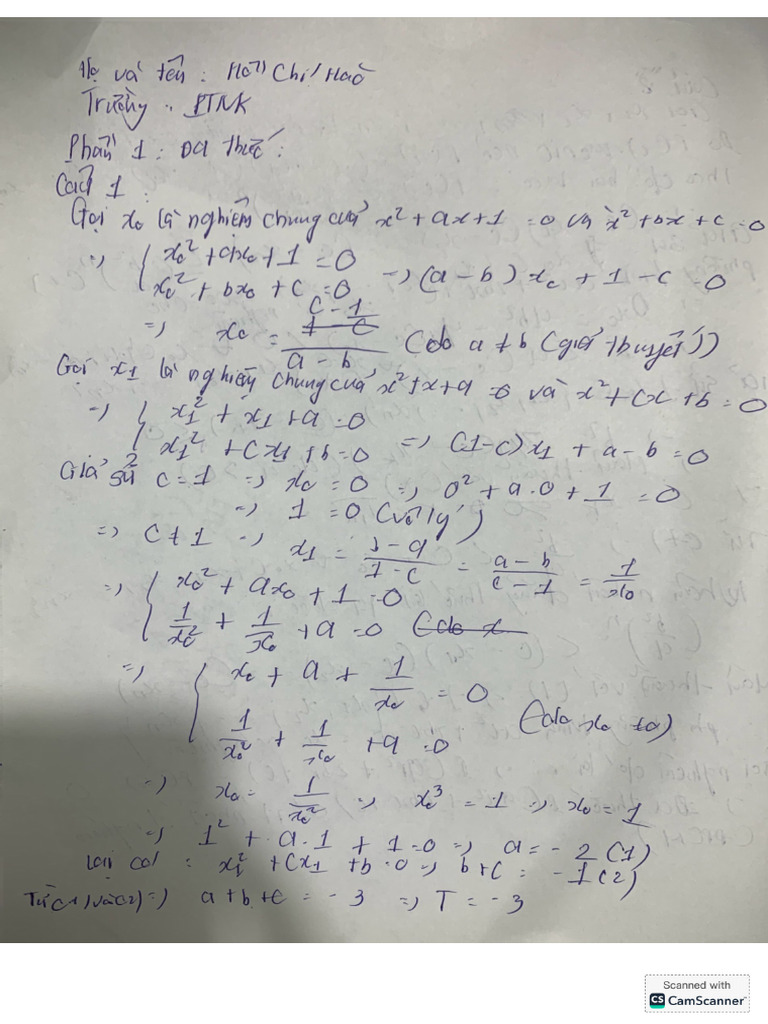 Họ và tên : Hồ Chí Hào
Trường : PTNK
Phần 1 : Đa thức :
Câu 1 :
Gọi x₀ là nghiệm chung của x² + ax + 1 = 0 và x² + bx + c = 0
=> { x₀² + ax₀ + 1 = 0
x₀² + bx₀ + c = 0 => (a - b) x₀ + 1 - c = 0
=> x₀ = (c - 1)/(a - b) (do a ≠ b (giả thuyết))
Gọi x₁ là nghiệm chung của x² + x + a = 0 và x² + cx + b = 0
=> { x₁² + x₁ + a = 0
x₁² + cx₁ + b = 0 => (1 - c)x₁ + a - b = 0
Giả sử c = 1 => x₀ = 0 => 0² + a.0 + 1 = 0
=> 1 = 0 (vô lý)
=> c ≠ 1 => x₁ = /(1 - c) = (a - b)/(c - 1) = 1/x₀
=> { x₀² + ax₀ + 1 = 0
1/x₀² + 1/x₀ + a = 0
=> { x₀ + a + 1/x₀ = 0
1/x₀² + 1/x₀ + a = 0 (do x₀ ≠ 0)
=> x₀ = 1/x₀² => x₀³ = 1 => x₀ = 1
=> 1² + a.1 + 1 = 0 => a = - 2 (1)
Lại có : x₁² + cx₁ + b = 0 => b + c = - 1 (2)
Từ (1) và (2) => a + b + c = - 3 => T = - 3
Scanned with
CS CamScanner